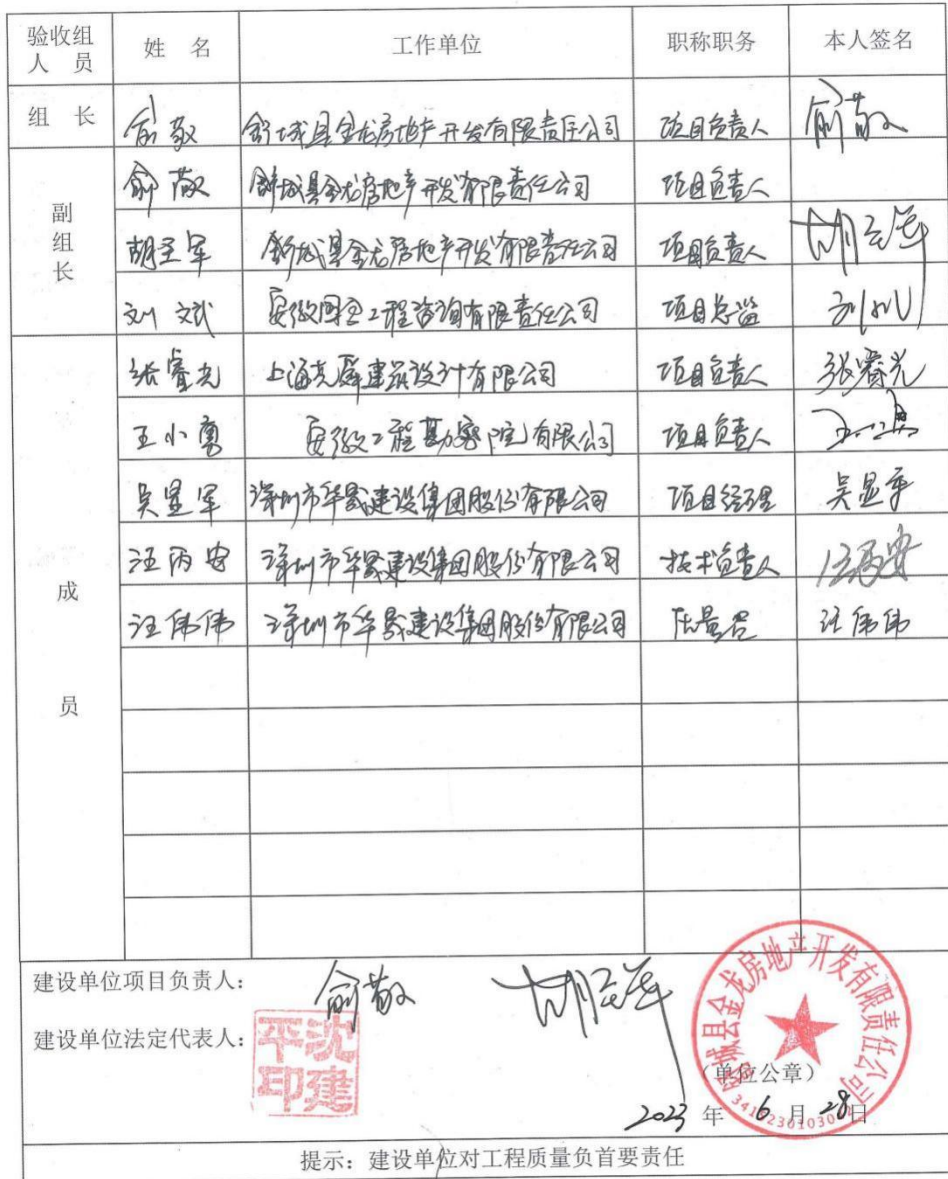 验收组人员 姓 名 工作单位 职称职务 本人签名
组 长 俞敬 舒城县金龙房地产开发有限责任公司 项目负责人 俞敬
副组长 俞敬 舒城县金龙房地产开发有限责任公司 项目负责人
胡圣军 舒城县金龙房地产开发有限责任公司 项目负责人 胡圣军
刘文武 安徽国金工程咨询有限责任公司 项目总监
成员 张睿光 上海克舜建筑设计有限公司 项目负责人 张睿光
王小勇 安徽工程勘察院有限公司 项目负责人 王小勇
吴显军 深圳市华晟建设集团股份有限公司 项目经理 吴显军
汪丙安 深圳市华晟建设集团股份有限公司 技术负责人 汪丙安
汪伟伟 深圳市华晟建设集团股份有限公司 质量员 汪伟伟
建设单位项目负责人: 俞敬 胡圣军
建设单位法定代表人: 沈建平印
舒城县金龙房地产开发有限责任公司
(单位公章)
2023 年 6 月 28 日
提示:建设单位对工程质量负首要责任